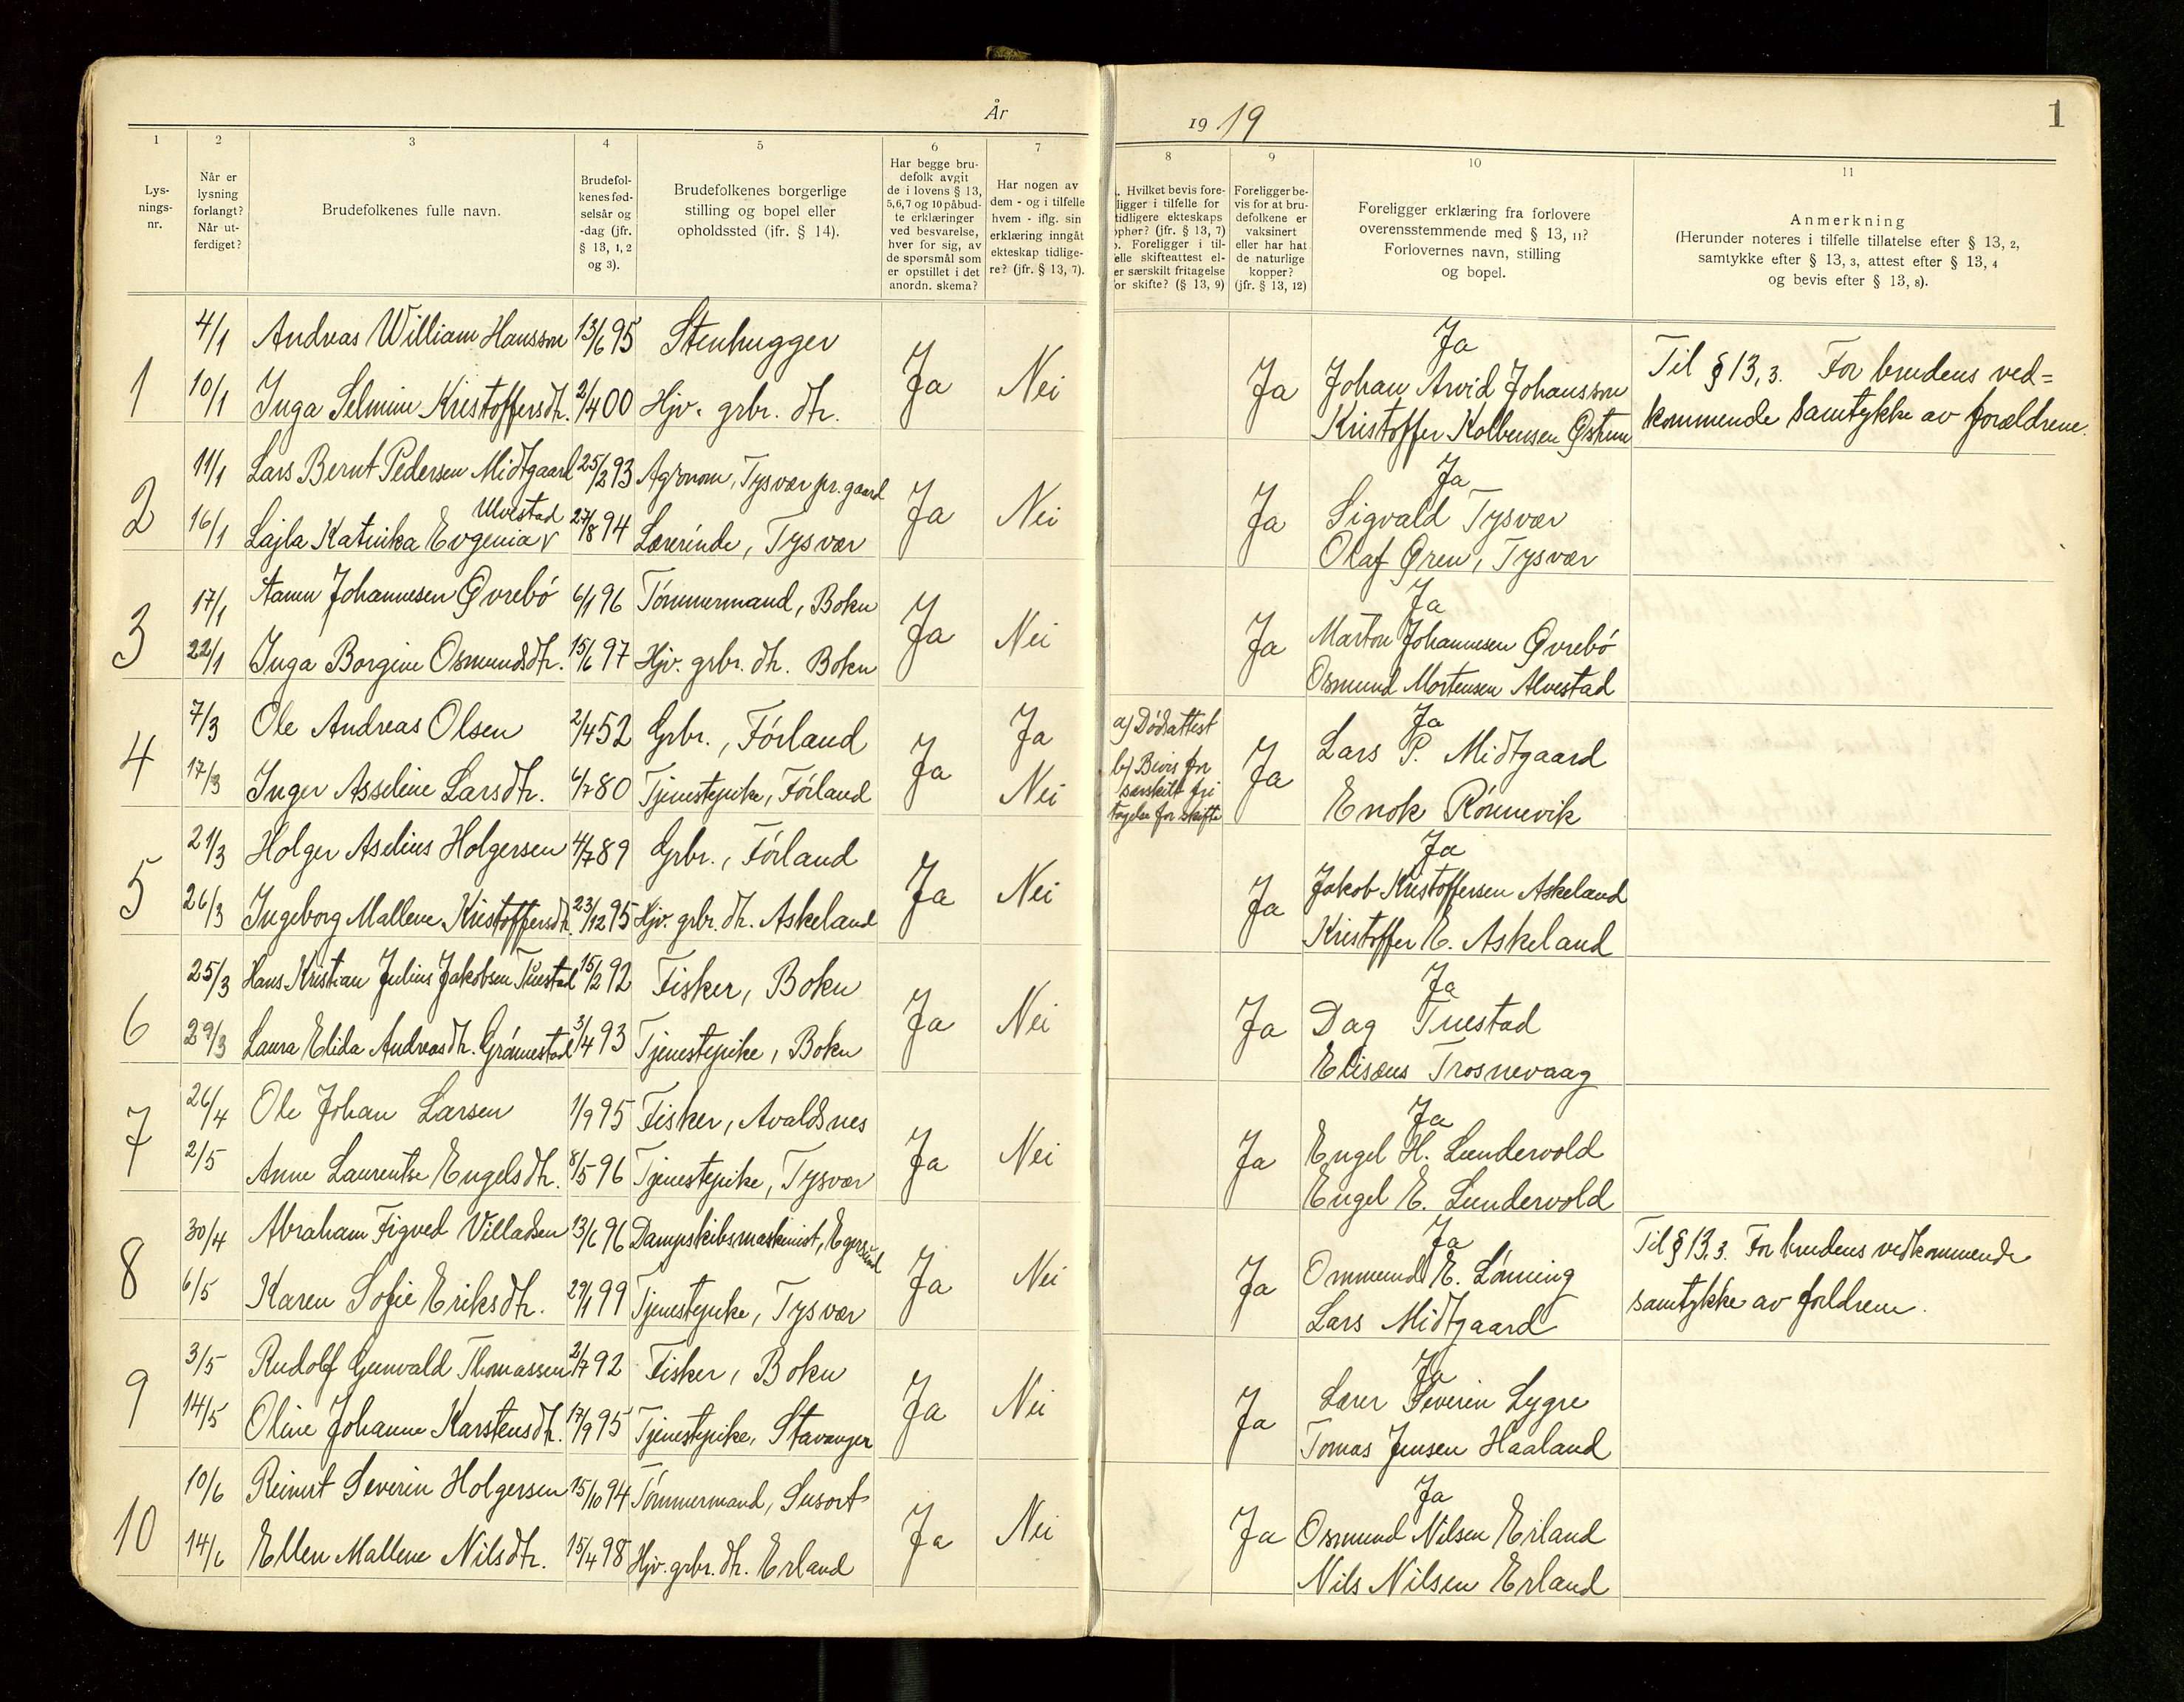 År 19 19
1
1 2 3 4 5 6 7 8 9 10 11
Lys-
nings-
nr.
Når er
lysning
forlangt?
Når ut-
ferdiget?
Brudefolkenes fulle navn.
Brudefol-
kenes fød-
selsår og
-dag (jfr.
§ 13, 1, 2
og 3).
Brudefolkenes borgerlige
stilling og bopel eller
opholdssted (jfr. § 14).
Har begge bru-
defolk avgit
de i lovens § 13,
5,6,7 og 10 påbud-
te erklæringer
ved besvarelse,
hver for sig, av
de spørsmål som
er opstillet i det
anordn. skema?
Har nogen av
dem - og i tilfelle
hvem - iflg. sin
erklæring inngåt
ekteskap tidlige-
re? (jfr. § 13, 7).
. Hvilket bevis fore-
ligger i tilfelle for
tidligere ekteskaps
ophør? (jfr. § 13, 7)
. Foreligger i til-
elle skifteattest el-
er særskilt fritagelse
or skifte? (§ 13, 9)
Foreligger be-
vis for at bru-
defolkene er
vaksinert
eller har hat
de naturlige
kopper?
(jfr. § 13, 12)
Foreligger erklæring fra forlovere
overensstemmende med § 13, 11?
Forlovernes navn, stilling
og bopel.
Anmerkning
(Herunder noteres i tilfelle tillatelse efter § 13, 2,
samtykke efter § 13, 3, attest efter § 13, 4
og bevis efter § 13, 8).
1
4/1 Andreas William Hansson 13/6 95 Stenhugger
10/1 Inga Selmine Kristoffersdtr. 2/4 00 Hjv. grbr. dtr.
Ja Nei Ja
Ja
Johan Arvid Johansson
Kristoffer Kolbensen Østum
Til § 13, 3. For brudens ved=
kommende samtykke av forældrene.
2
11/1 Lars Bernt Pedersen Midtgaard 25/2 93 Agronom, Tysvær pr. gaard
Ulvestad
16/1 Lajla Katinka Evgenia v 27/8 94 Lærerinde, Tysvær
Ja Nei Ja
Ja
Sigvald Tysvær
Olaf Øren, Tysvær
3
17/1 Aamu Johannesen Øvrebó 6/1 96 Tómmermand, Bokn
22/1 Inga Borgine Osmundsdtr. 15/6 97 Hjv. grbr. dtr. Bokn
Ja Nei Ja
Ja
Marton Johannesen Øvrebó
Osmund Mortensen Alvestad
4
7/3 Ole Andreas Olsen 2/4 52 Grbr., Fórland
17/3 Inger Asseline Larsdtr. 6/7 80 Tjenestepike, Fórland
Ja
Ja
Nei
a) Dódsattest
b) Bevis for
særskilt fri
tagelse for skifte
Ja
Ja
Lars P. Midtgaard
Enok Rónnevik
5
21/3 Holger Aselius Holgersen 4/7 89 Grbr., Fórland
26/3 Ingeborg Mallene Kristoffersdtr. 23/12 95 Hjv. grbr. dtr. Askeland
Ja Nei Ja
Ja
Jakob Kristoffersen Askeland
Kristoffer E. Askeland
6
25/3 Hans Kristian Julius Jakobsen Tuestad 15/2 92 Fisker, Bokn
29/3 Laura Elida Andreasdtr. Grónnestad 3/4 93 Tjenestepike, Bokn
Ja Nei Ja
Ja
Dag Tuestad
Elisæus Trosnevaag
7
26/4 Ole Johan Larsen 1/9 95 Fisker, Avaldsnes
2/5 Anne Laurentse Engelsdtr. 8/5 96 Tjenestepike, Tysvær
Ja Nei Ja
Ja
Engel H. Lundervold
Engel E. Lundervold
8
30/4 Abraham Figved Villadsen 13/6 96 Dampskibsmaskinist, Egersund
6/5 Karen Sofie Eriksdtr. 29/1 99 Tjenestepike, Tysvær
Ja Nei Ja
Ja
Ommund E. Lónning
Lars Midtgaard
Til § 13, 3. For brudens vedkommende
samtykke av forldrene.
9
3/5 Rudolf Gunvald Thomassen 2/7 92 Fisker, Bokn
14/5 Oline Johanne Karstensdtr. 17/9 95 Tjenestepike, Stavanger
Ja Nei Ja
Ja
Lærer Severin Lygre
Tomas Jensen Haaland
10
10/6 Reinert Severin Holgersen 15/10 94 Tómmermand, Susort
14/6 Ellen Mallene Nilsdtr. 15/4 98 Hjv. grbr. dtr. Erland
Ja Nei Ja
Ja
Osmund Nilsen Erland
Nils Nilsen Erland